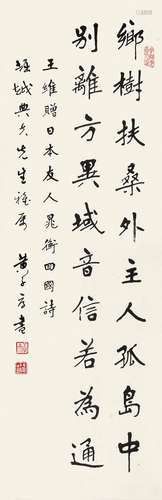 鄉樹扶桑外主人孤島中
別離方異域音信若為通
王維贈日本友人晁衡回國詩
典久先生雅屬 黃子方書